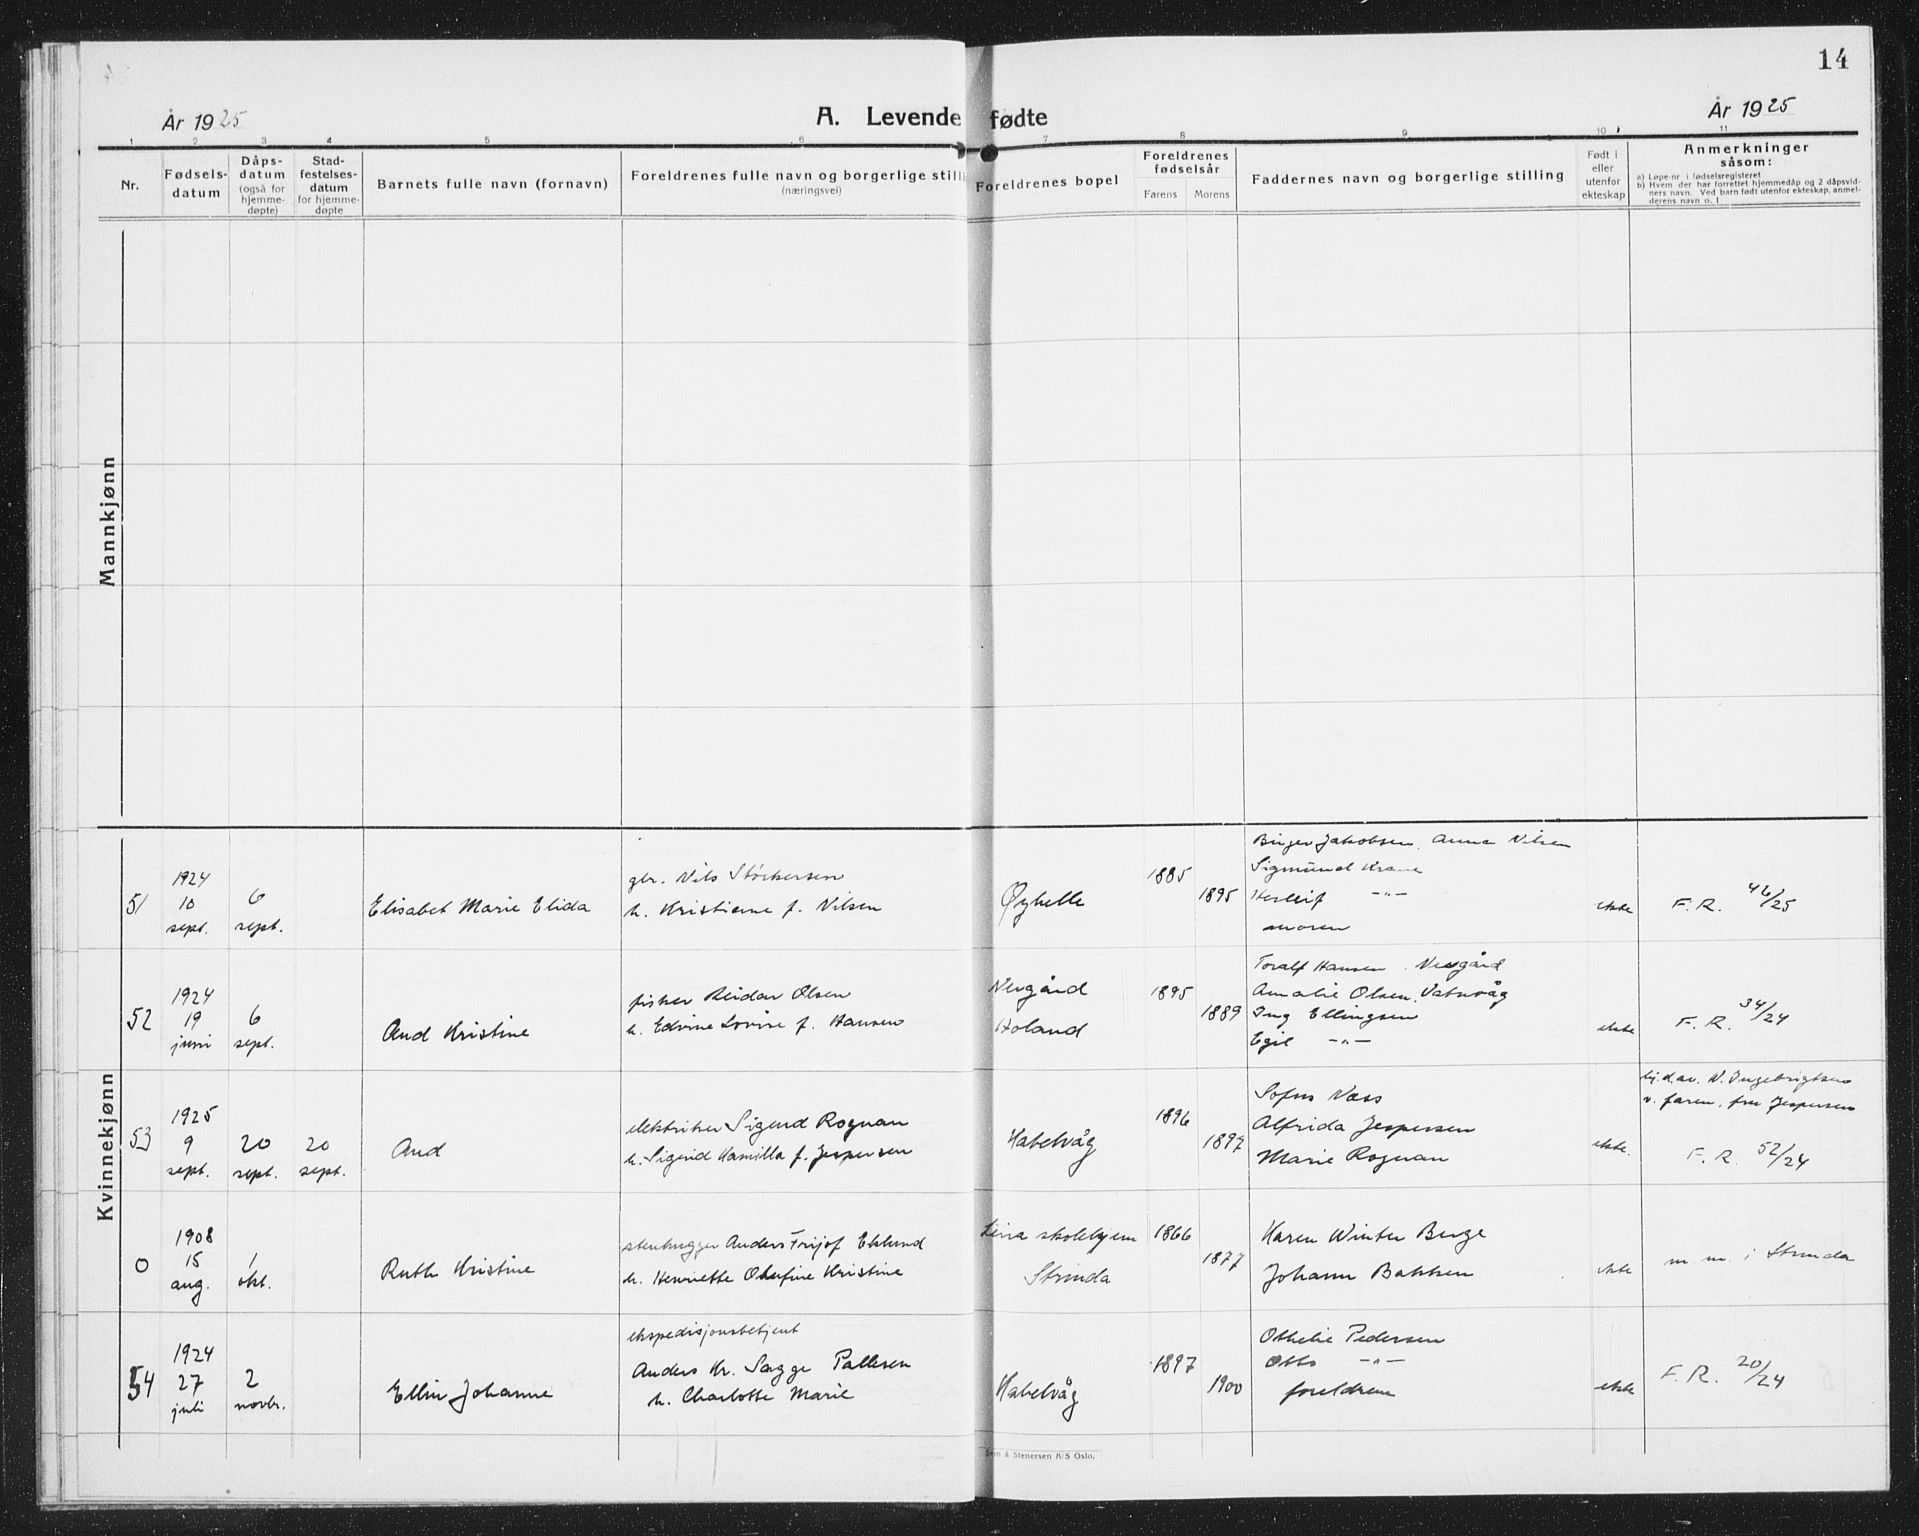 14
År 1925
A. Levende fødte
År 1925
1 2 3 4 5 6 7 8 9 10 11
Nr.
Fødsels-
datum
Dåps-
datum
(også for
hjemme-
døpte)
Stad-
festelses-
datum
for hjemme-
døpte
Barnets fulle navn (fornavn)
Foreldrenes fulle navn og borgerlige stilli
(næringsvei)
Foreldrenes bopel
Foreldrenes
fødselsår
Farens Morens
Faddernes navn og borgerlige stilling
Født i
eller
utenfor
ekteskap
Anmerkninger
såsom:
a) Løpe-nr i fødselsregisteret
b) Hvem der har forrettet hjemmedåp og 2 dåpsvid-
ners navn. Ved barn født utenfor ekteskap, anmel-
derens navn o. l
Mannkjønn
Kvinnekjønn
51
1924
10
sept.
6
sept.
Elisabet Marie Elida
gbr. Nils Störkersen
h. Kristienne f. Nilsen
Øyhelle
1885
1895
Birger Jakobsen, Anna Nilsen
Sigmund Krane
Herleif -"-
moren
ekte
F.R. 46/25
52
1924
19
juni
6
sept.
Aud Kristine
fisker Reidar Olsen
h. Edvine Lovise f. Hansen
Nevgård
Holand
1895
1889
Toralf Hansen, Nevgård
Amalie Olsen, Vatnvåg
Ing Ellingsen
Egil -"-
ekte
F.R. 34/24
53
1925
9
sept.
20
sept.
20
sept.
Aud
elektriker Sigurd Rognan
h. Sigrid Kamilla f. Jespersen
Habelvåg
1896
1897
Sofus Næss
Alfrida Jespersen
Marie Rognan
ekte.
hj.d. av. N. Ingebrigtsen
v. faren, fru Jespersen
F.R. 52/24
0
1908
15
aug.
1
okt.
Ruth Kristine
stenhugger Anders Frijof Eklund
h. Henriette Olufine Kristine
Leira skolehjem
Strinda
1866
1877
Karen Winter Berge
Johann Bakken
ekte
m. m. i Strinda
54
1924
27
juli
2
novbr.
Ellin Johanne
ekspedisjonsbetjent
Anders Kr. Sagge Pallesen
h. Charlotte Marie
Habelvåg
1897
1900
Othelie Pedersen
Otto -"-
foreldrene
ekte
F.R. 20/24
Sem & Stenersen A/S Oslo.